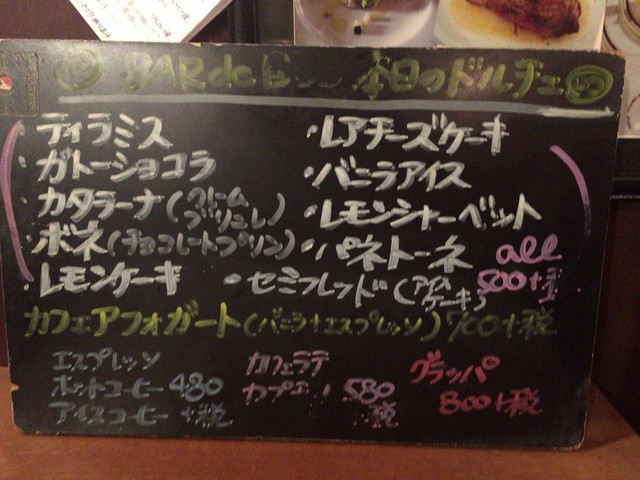 BAR de 本日のドルチェ
・ティラミス ・レアチーズケーキ
・ガトーショコラ ・バニラアイス
・カタラーナ(クリームブリュレ) ・レモンシャーベット
・ボネ(チョコレートプリン) ・パネトーネ all
・レモンケーキ ・セミフレッド(アイスケーキ) 500+税
カフェアフォガート(バニラ+エスプレッソ) 700+税
エスプレッソ
ホットコーヒー 480
アイスコーヒー +税
カフェラテ
カプチーノ 580
税
グラッパ
800+税